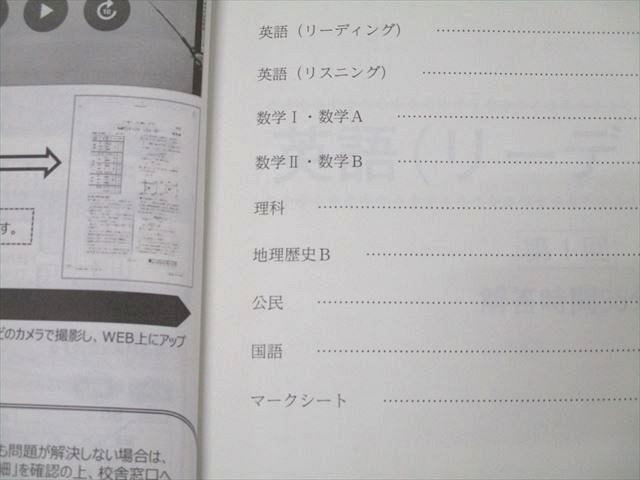 10
す。
どのカメラで撮影し、WEB上にアップ
も問題が解決しない場合は、
細」を確認の上、校舎窓口へ
英語（リーディング） ……………………
英語（リスニング） ……………………
数学Ⅰ・数学A ……………………
数学Ⅱ・数学B ……………………
理科 ……………………
地理歴史B ……………………
公民 ……………………
国語 ……………………
マークシート ……………………